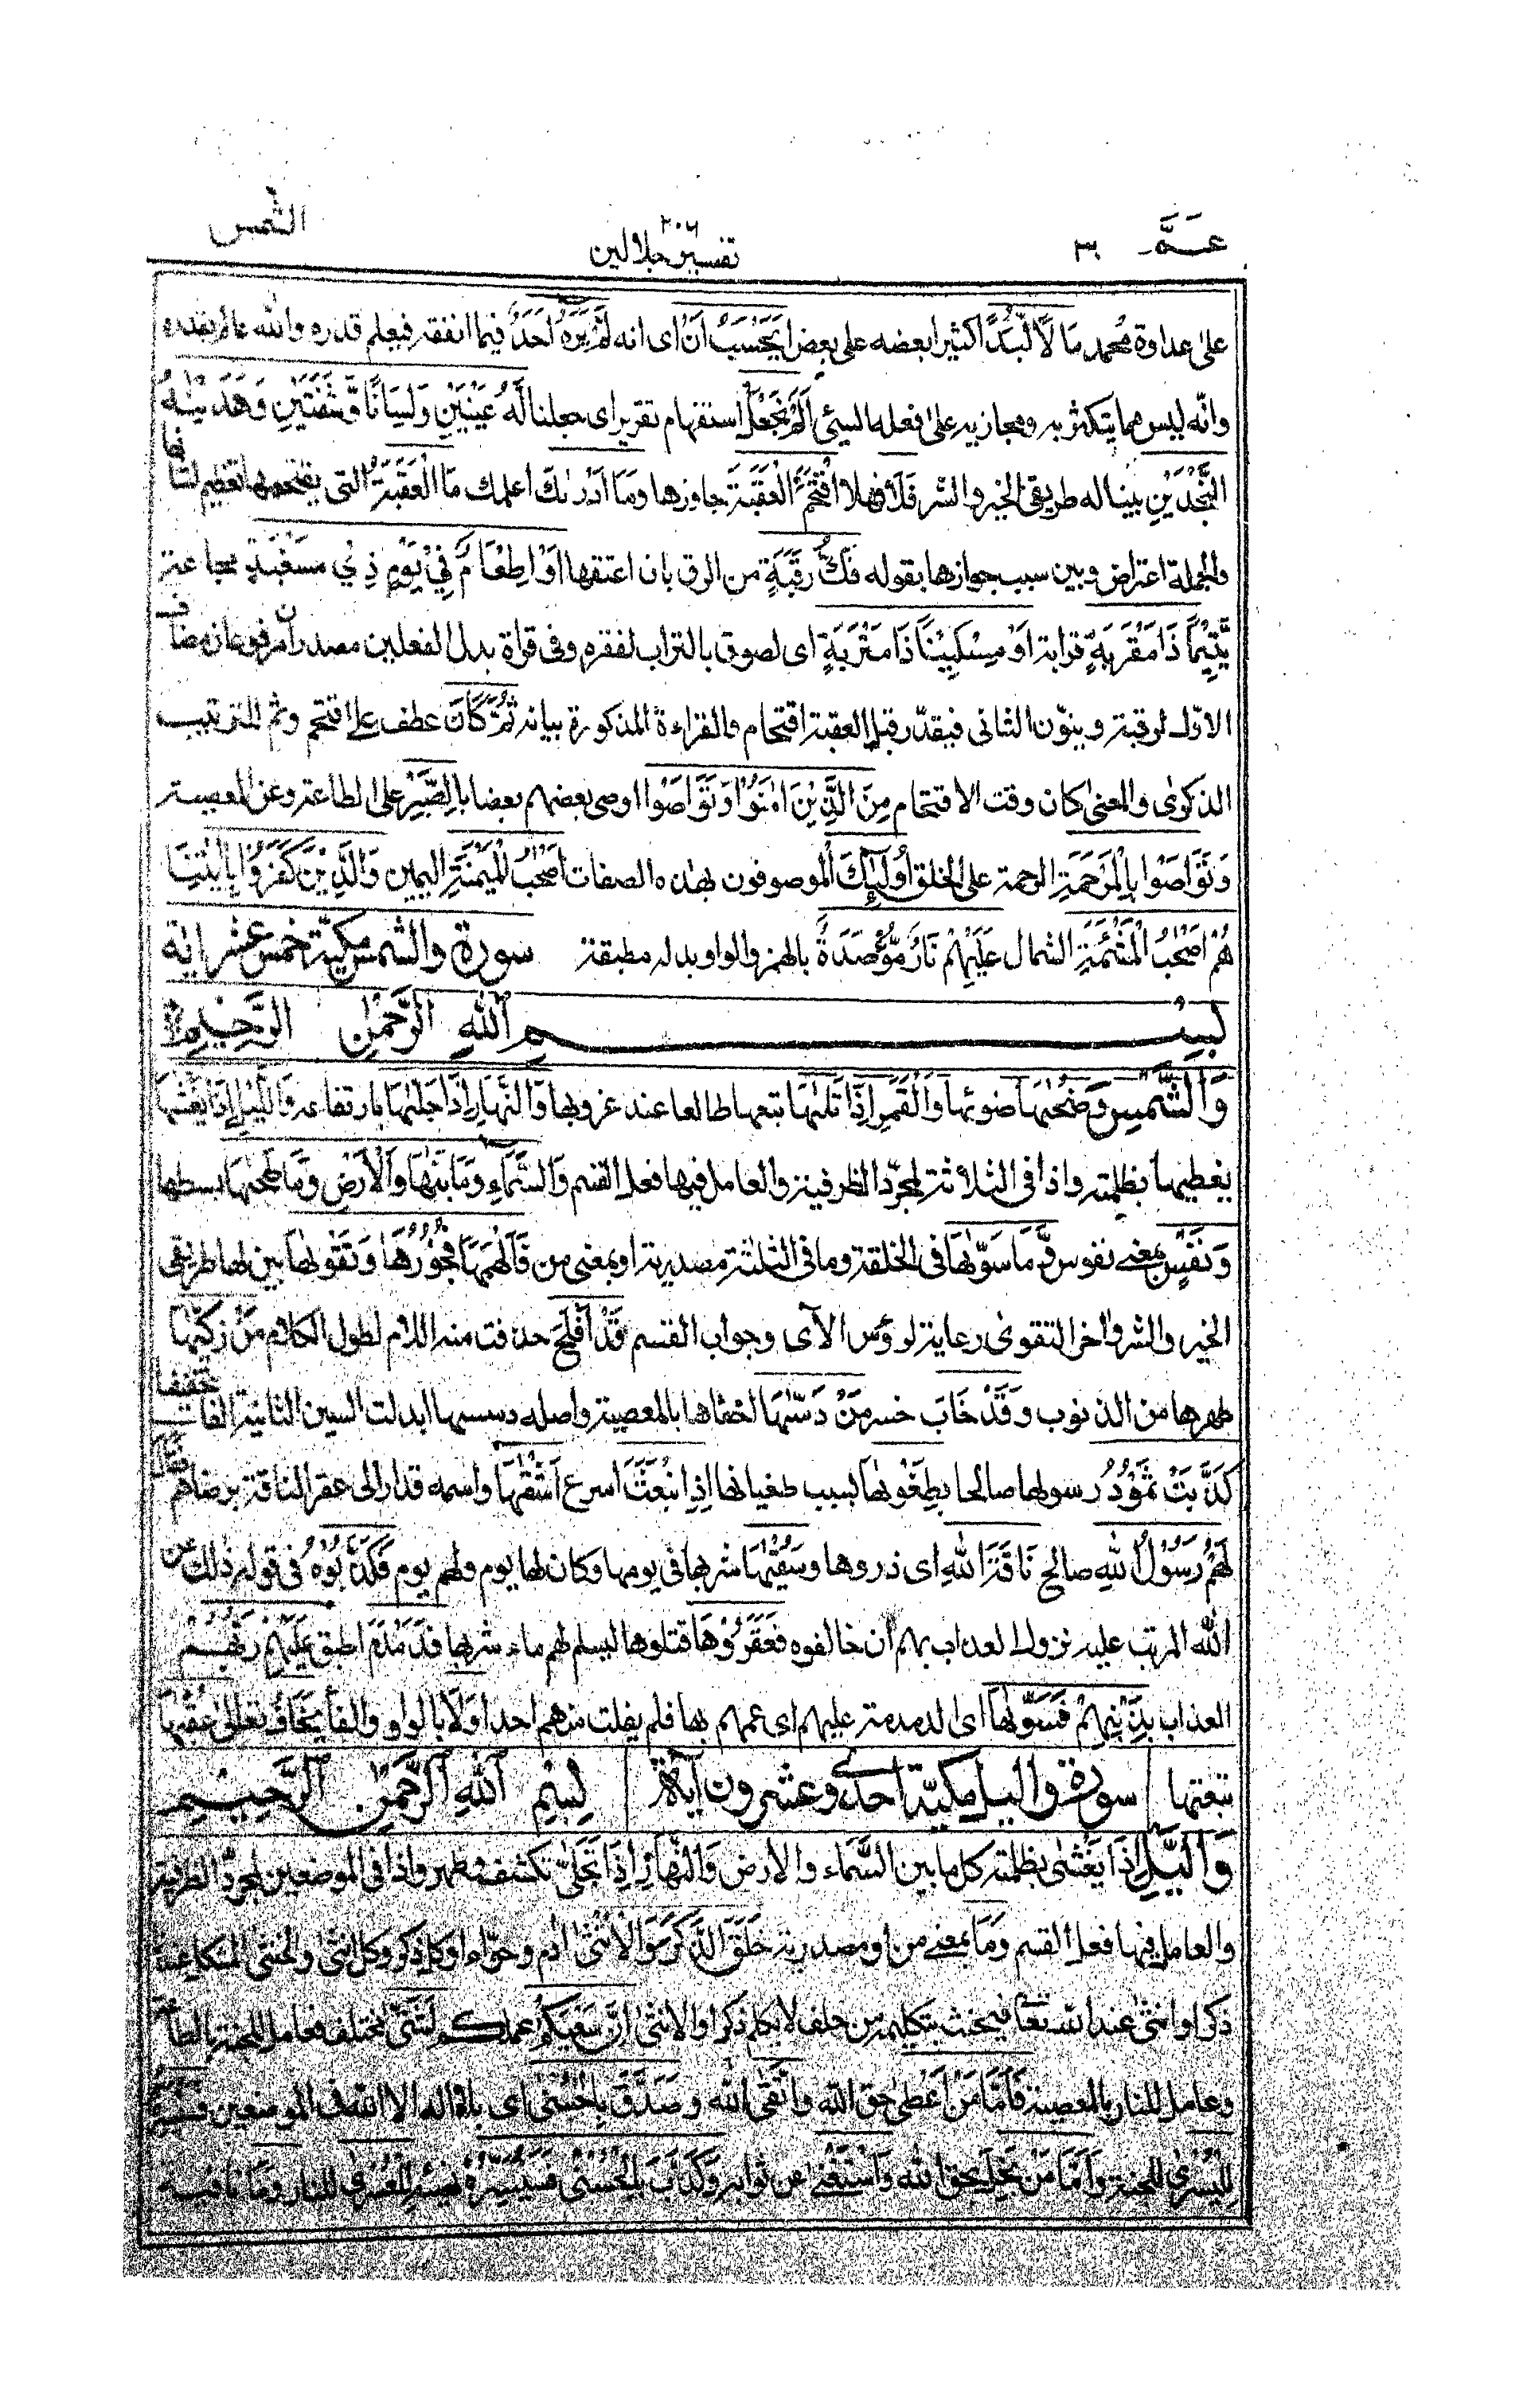 عـمّ ٣٠
٢٠٦
تفسير جلالين
الشمس
على عداوة محمد مَالًا لُّبَدًا كثيرا بعضه على بعض اَيَحْسَبُ اَنْ اى انه لَّمْ يَرَهُ اَحَدٌ فيما انفقه فيعلم قدره والله عالم بقدره
وانّه ليس مما يتكثر به ومجازيه على فعله السيئ اَلَمْ نَجْعَلْ استفهام تقرير اى جعلنا لَّهُ عَيْنَيْنِ وَلِسَانًا وَّشَفَتَيْنِ وَهَدَيْنٰهُ
النَّجْدَيْنِ بينا له طريقى الخير والشر فَلَا فهلا اقْتَحَمَ الْعَقَبَةَ جاوزها وَمَا اَدْرٰىكَ اعلمك مَا الْعَقَبَةُ التى يقتحمها تعظيم لشانها
والجملة اعتراض وبين سبب جوازها بقوله فَكُّ رَقَبَةٍ من الرق بان اعتقها اَوْ اِطْعَامٌ فِيْ يَوْمٍ ذِيْ مَسْغَبَةٍ مجاعة
يَّتِيْمًا ذَا مَقْرَبَةٍ قرابة اَوْ مِسْكِيْنًا ذَا مَتْرَبَةٍ اى لصوق بالتراب لفقره وفى قراة بدل الفعلين مصدران مرفوعان مضاف
الاوّل لرقبة وينوّن الثانى فيقدّر قبل العقبة اقتحام والقراءة المذكورة بيانه ثُمَّ كَانَ عطف على اقتحم وثم للترتيب
الذكرى والمعنى كان وقت الاقتحام مِنَ الَّذِيْنَ اٰمَنُوْا وَتَوَاصَوْا اوصى بعضهم بعضا بِالصَّبْرِ على الطاعة وعن المعصية
وَتَوَاصَوْا بِالْمَرْحَمَةِ الرحمة على الخلق اُولٰٓئِكَ الموصوفون بهذه الصفات اَصْحٰبُ الْمَيْمَنَةِ اليمين وَالَّذِيْنَ كَفَرُوْا بِاٰيٰتِنَا
هُمْ اَصْحٰبُ الْمَشْئَمَةِ الشمال عَلَيْهِمْ نَارٌ مُّؤْصَدَةٌ بالهمز والواو بدله مطبقة سورة والشمس مكيّة خمس عشر اية
بِسْمِ اللهِ الرَّحْمٰنِ الرَّحِيْمِ
وَالشَّمْسِ وَضُحٰىهَا ضوئها وَالْقَمَرِ اِذَا تَلٰىهَا تبعها طالعا عند غروبها وَالنَّهَارِ اِذَا جَلّٰىهَا بارتفاعه وَالَّيْلِ اِذَا يَغْشٰىهَا
يغطيها بظلمته واذا فى الثلاثة لمجرّد الظرفية والعامل فيها فعل القسم وَالسَّمَآءِ وَمَا بَنٰىهَا وَالْاَرْضِ وَمَا طَحٰىهَا بسطها
وَنَفْسٍ بمعنى نفوس وَّمَا سَوّٰىهَا فى الخلقة وما فى الثلثة مصدرية او بمعنى من فَاَلْهَمَهَا فُجُوْرَهَا وَتَقْوٰىهَا بين لها طريقى
الخير والشر واخر التقوى رعاية لرؤس الآى وجواب القسم قَدْ اَفْلَحَ حذفت منه اللام لطول الكلام مَنْ زَكّٰىهَا
طهرها من الذنوب وَقَدْ خَابَ خسر مَنْ دَسّٰىهَا اخفاها بالمعصية واصله دسسها ابدلت السين الثانية الفا تخفيفا
كَذَّبَتْ ثَمُوْدُ رسولها صالحا بِطَغْوٰىهَا بسبب طغيانها اِذِ انْۢبَعَثَ اسرع اَشْقٰىهَا واسمه قدار الى عقر الناقة برضاهم فَقَالَ
لَهُمْ رَسُوْلُ اللهِ صالح نَاقَةَ اللهِ اى ذروها وَسُقْيٰهَا شربها فى يومها وكان لها يوم ولهم يوم فَكَذَّبُوْهُ فى قوله ذلك عن
الله المرتب عليه نزول العذاب بهم ان خالفوه فَعَقَرُوْهَا قتلوها ليسلم لهم ماء شربها فَدَمْدَمَ اطبق عَلَيْهِمْ رَبُّهُمْ
العذاب بِذَنْۢبِهِمْ فَسَوّٰىهَا اى الدمدمة عليهم اى عمهم بها فلم يفلت منهم احدا وَلَا بالواو والفا يَخَافُ تعالى عُقْبٰهَا
تبعتها سورة واليل مكيّة احدى وعشرون آية بِسْمِ اللهِ الرَّحْمٰنِ الرَّحِيْمِ
وَالَّيْلِ اِذَا يَغْشٰى بظلمته كل ما بين السَّمَاء والارض وَالنَّهَارِ اِذَا تَجَلّٰى تكشف وظهر واذا فى الموضعين لمجرّد الظرفية
والعامل فيها فعل القسم وَمَا بمعنى من او مصدرية خَلَقَ الذَّكَرَ وَالْاُنْثٰى ادم وحوّاء او كل ذكر وكل انثى والخنثى المشكل عندنا
ذكر او انثى عند الله تعا فيحنث بتكليمه من حلف لا يكلم ذكرا ولا انثى اِنَّ سَعْيَكُمْ عملكم لَشَتّٰى مختلف فعامل للجنة بالطاعة
وعامل للنار بالمعصية فَاَمَّا مَنْ اَعْطٰى حق الله وَاتَّقٰى الله وَصَدَّقَ بِالْحُسْنٰى اى بلا اله الا الله فى الموضعين فَسَنُيَسِّرُهُ
لِلْيُسْرٰى للجنة وَاَمَّا مَنْ بَخِلَ بحق الله وَاسْتَغْنٰى عن ثوابه وَكَذَّبَ بِالْحُسْنٰى فَسَنُيَسِّرُهُ نهيئه لِلْعُسْرٰى للنار وَمَا نافية